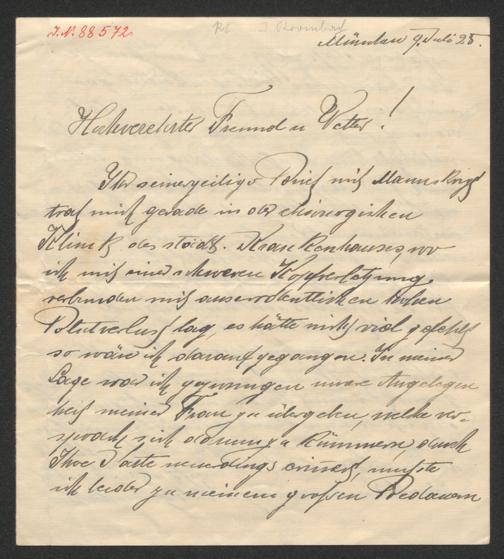 J.N. 88572
München 9. Juli 25.
Hochverehrter Freund u Vetter!
Ihr seinerzeitiger Brief mit Manuskript
traf mich gerade in der chirurgischen
Klinik des städt. Krankenhauses, wo
ich mit einer schweren Kopfverletzung
verbunden mit ausserordentlichen hohen
Blutverlust lag, es hätte nicht viel gefehlt
so wäre ich darauf gegangen. In meiner
Lage war ich gezwungen unsere Angelegen
heit meiner Frau zu übergeben, welche ver-
sprach, sich darum zu kümmern, durch
Ihre Karte neuerdings erinnert, musste
ich leider zu meinem großen Bedauern